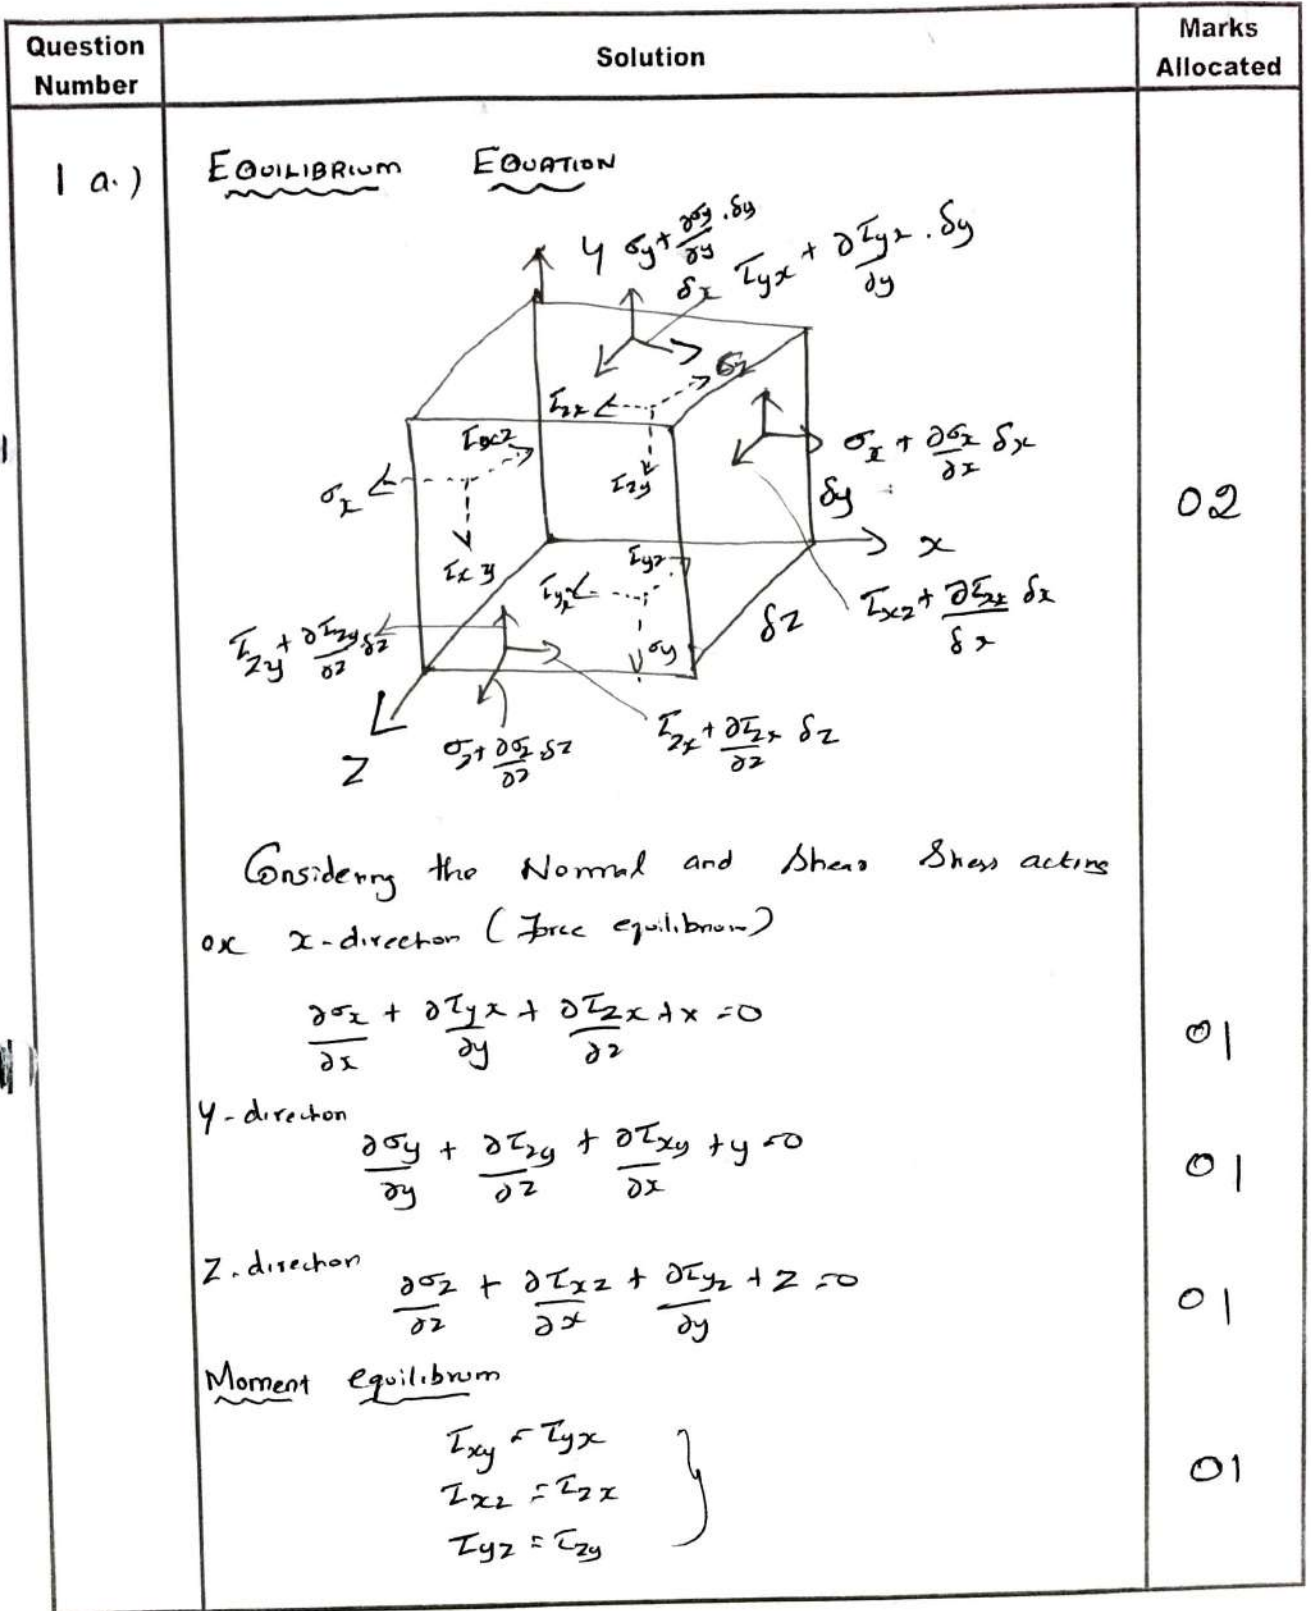 Question Number
Solution
Marks Allocated
1 a.)
EQUILIBRIUM EQUATION
Y
σy + ∂σy/∂y . δy
τyx + ∂τyx/∂y . δy
δx
σz
τzx
τzy
τxz
σx
τxy
σx + ∂σx/∂x δx
δy
x
τyz
τyx
σy
δz
τxz + ∂τxz/δx δx
τzy + ∂τzy/∂z δz
Z
σz + ∂σz/∂z δz
τzx + ∂τzx/∂z δz
02
Considering the Normal and Shear Stress acting
ox x-direction (Force equilibrium)
∂σx/∂x + ∂τyx/∂y + ∂τzx/∂z + x = 0
01
Y-direction
∂σy/∂y + ∂τzy/∂z + ∂τxy/∂x + y = 0
01
Z-direction
∂σz/∂z + ∂τxz/∂x + ∂τyz/∂y + Z = 0
01
Moment equilibrium
τxy = τyx
τxz = τzx
τyz = τzy
01